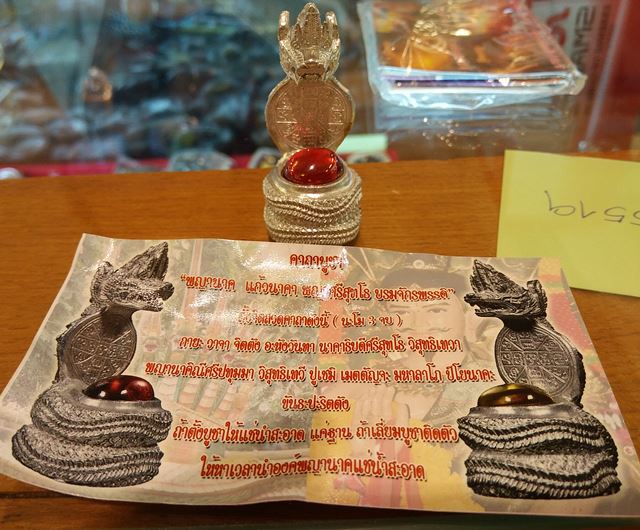 คาถาบูชา
"พญานาค แก้วนาคา พญาศรีสุทโธ บรมจักรพรรดิ"
สวดคาถาดังนี้ ( นะโม 3 จบ )
กายะ วาจา จิตตัง อะหังวันทา นาคาธิบดีศรีสุทโธ วิสุทธิเทวา
พญานาคิณีศรีปทุมมา วิสุทธิเทวี ปูเชมิ เมตตัญจะ มหาลาโภ ปิโยนาคะ
ขันธะปะริตตัง
ถ้าตั้งบูชาให้แช่น้ำสะอาด แค่ฐาน ถ้าเลี่ยมบูชาติดตัว
ให้หาเวลานำองค์พญานาคแช่น้ำสะอาด